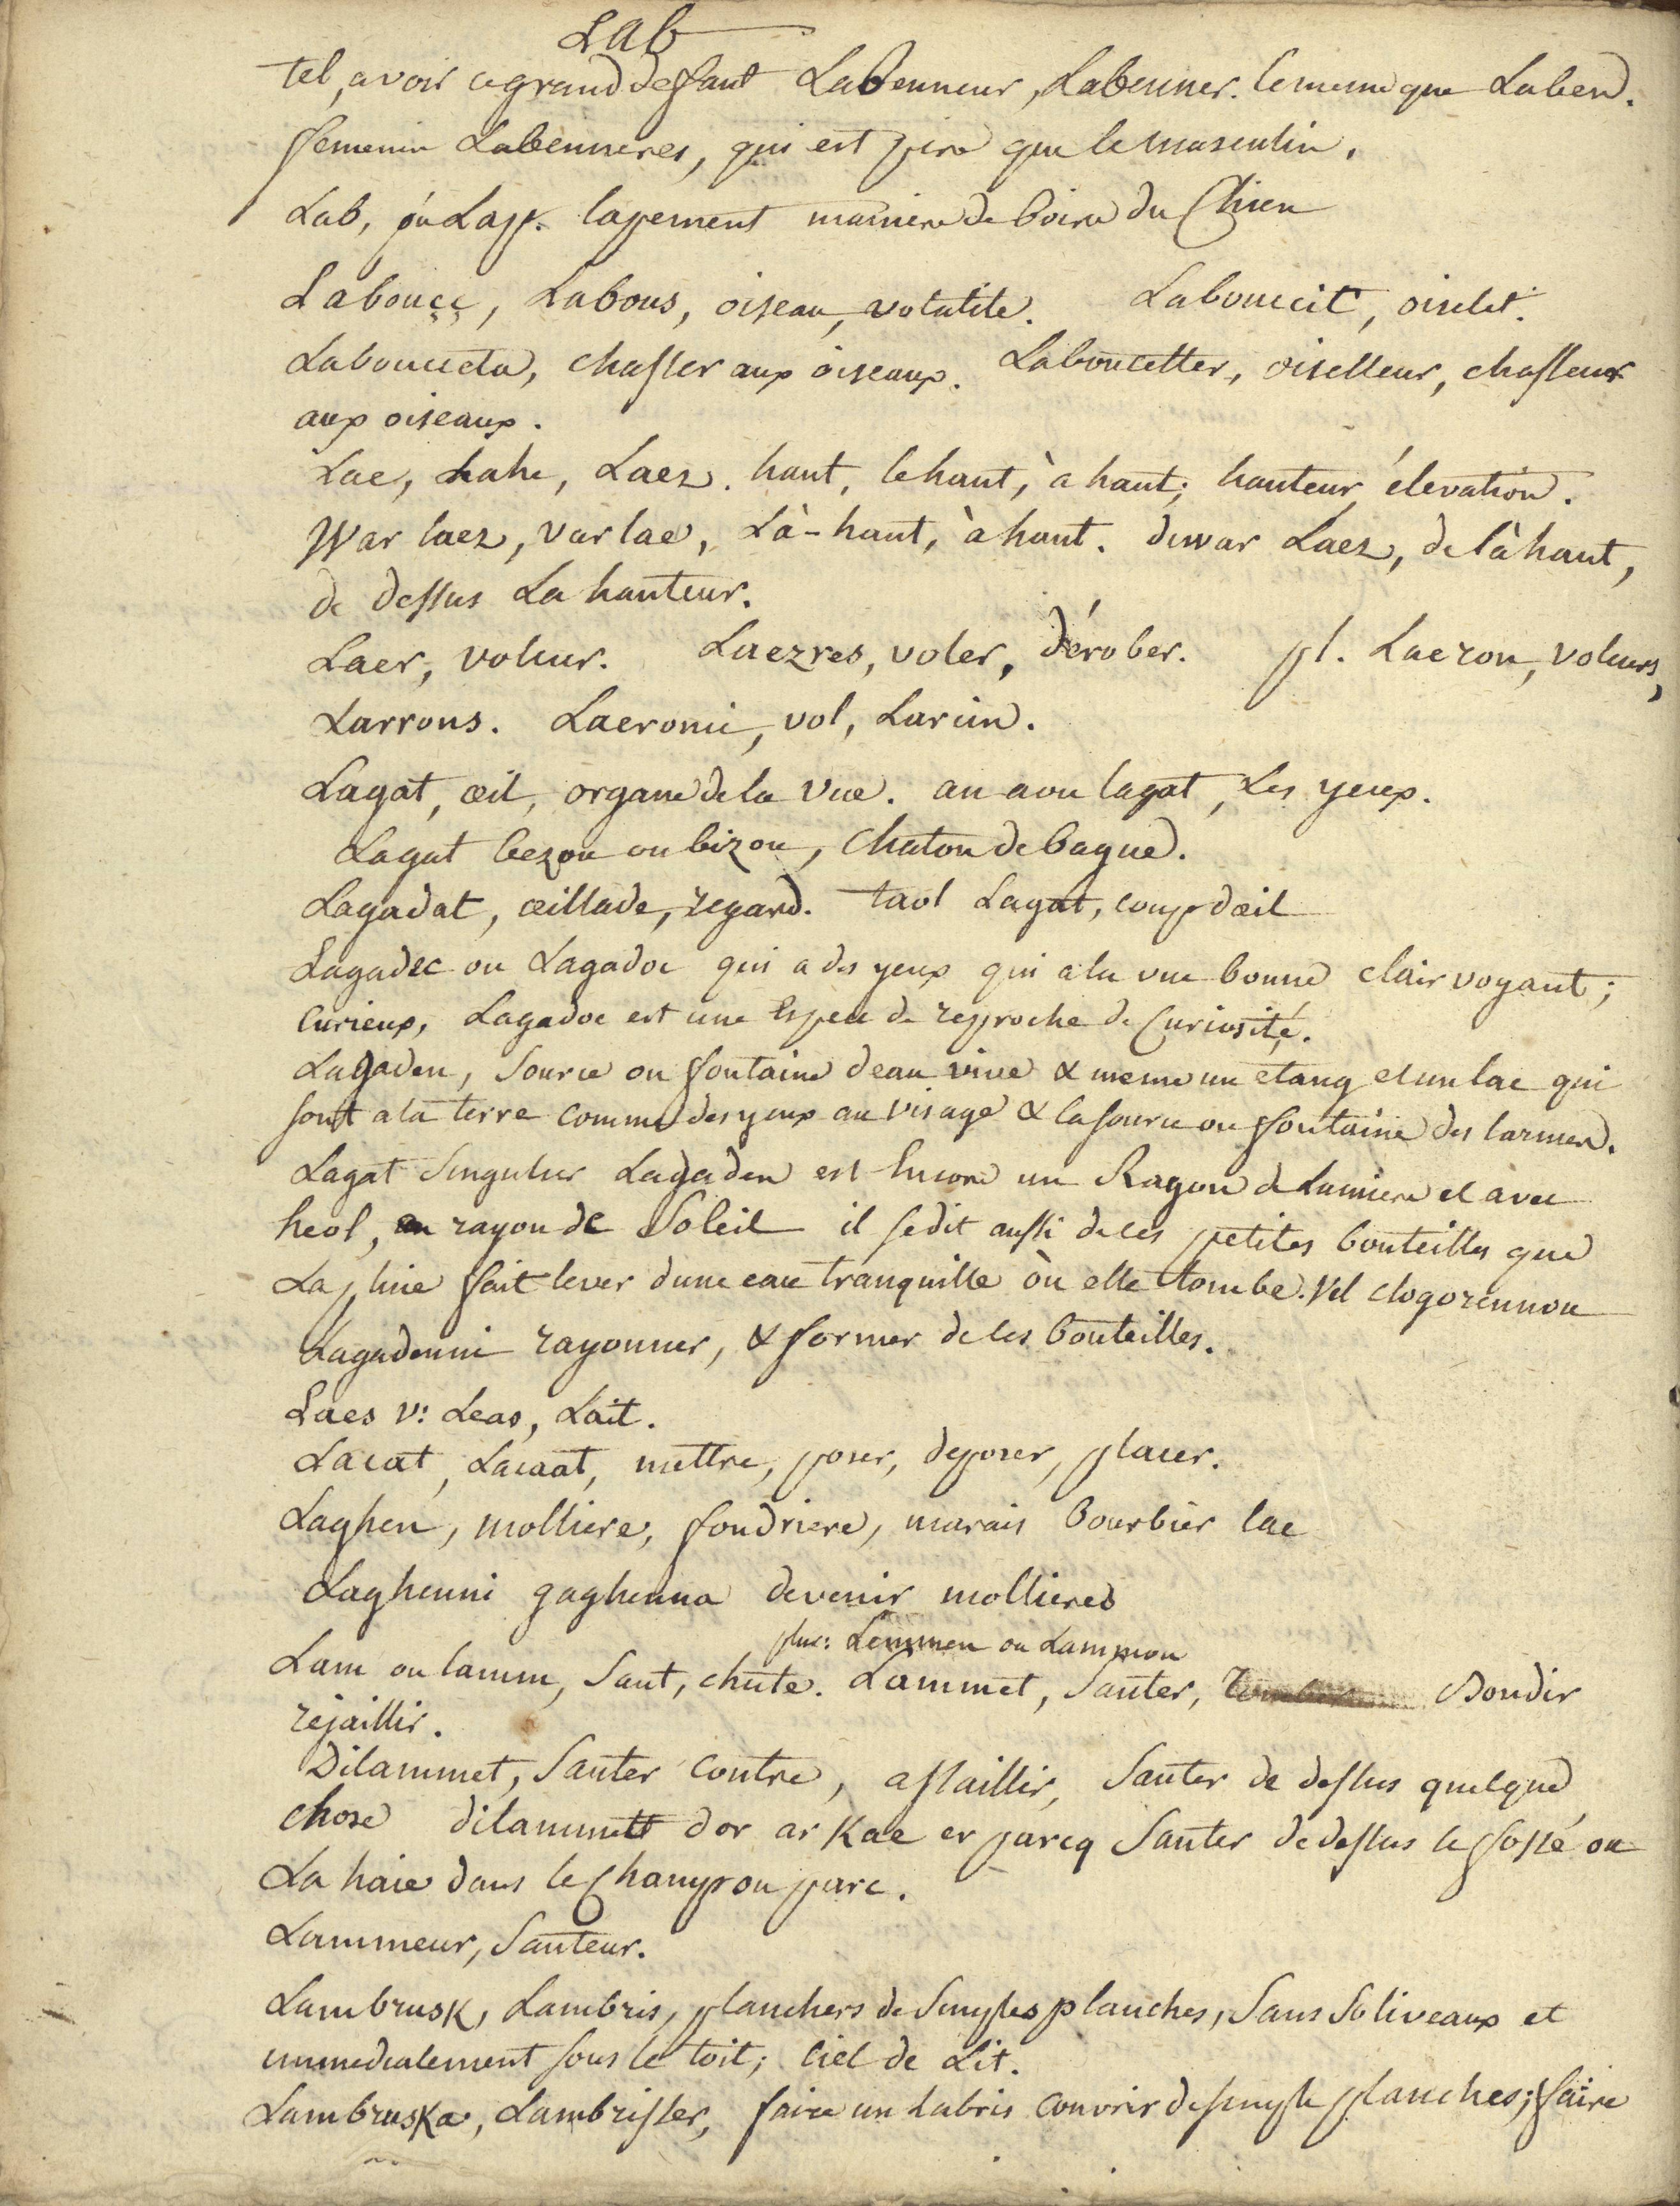 Lab
tel, avoir ce grand deffaut Labenneur, Labenner. le meme que Laben.
femenin Labenneres, qui est pire que le masculin.
Lab, ou Lapp. lapement maniere de boire du Chien
Labouçç, Labous, oiseau, volatile. Laboucic, oiselet.
Labouceta, chasser aux oiseaux. Laboucetter, oiselleur, chasseur
aux oiseaux.
Lae, Lahe, Laez. haut, le haut, à haut; hauteur, élevation.
War laez, var lae, Là-haut, à haut. diwar Laez, de là haut,
de dessus La hauteur.
Laer, voleur. Laezres, voler, dérober. pl. Laezon, voleurs,
Larrons. Laeronic, vol, Larcin.
Lagat, œil, organe de la vue. an aou lagat, Les yeux.
Lagat bezou ou bizou, Chaton de bague.
Lagadat, œillade, regard. taol Lagat, coup dœil
Lagadec ou Lagadoc qui a des yeux qui a la vue bonne clair voyant;
curieux, Lagadoc est une Espece de reproche de Curiosité.
Lagaden, Source ou fontaine deau vive & meme un etang et un lac qui
sont a la terre comme des yeux au visage & la source ou fontaine des larmes.
Lagat Singulier Lagaden est Encore un Rayon de Lumiere et avec
heol, un rayon de Soleil il se dit aussi de ces petites bouteilles que
La pluie fait lever dune eau tranquille où elle tombe. Vid clogorennou
Lagadenni rayonner, & former de ces bouteilles.
Laes v: Leas, Lait.
Lacat, Lacaat, mettre, poser, deposer, placer.
Laghen, molliere, fondriere, marais bourbier lac
Laghenni gaghenna devenir mollieres
plur: Lemmen ou Lammou
Lam ou lamm, Saut, chute. Lammet, Sauter, tomber Bondir
rejaillir.
Dilammet, Sauter contre, assaillir, Sauter de dessus quelque
chose dilammett dor ar Kae er parcq Sauter de dessus le fossé ou
La haie dans le Champ ou parc.
Lammeur, Sauteur.
Lambrusk, Lambris, planchers de Simples planches, Sans Soliveaux et
immediatement sous le toit; ciel de Lit.
Lambruska, Lambrisser, faire un Labris couvrir de simple planches; faire